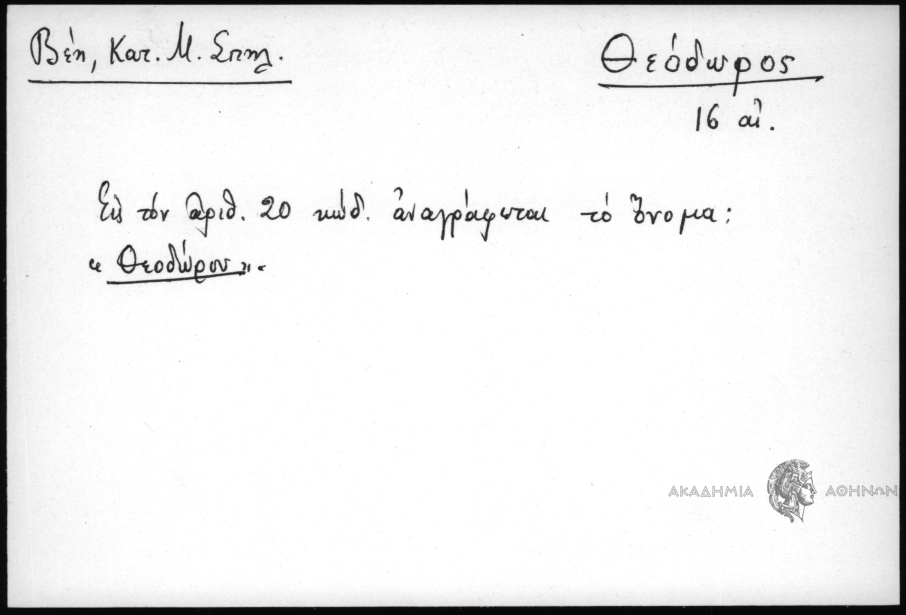 Βέη, Κατ. Μ. Σπηλ.
Θεόδωρος
16 αἰ.
Εἰς τόν ἀριθ. 20 κώδ. ἀναγράφεται τό ὄνομα:
« Θεοδώρου ».
ΑΚΑΔΗΜΙΑ ΑΘΗΝΩΝ